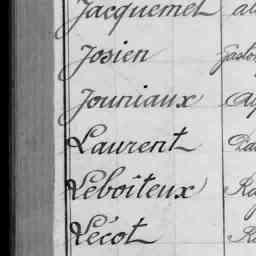 Jacquemet
Josien
Jouniaux
Laurent
Leboiteux
Lécot